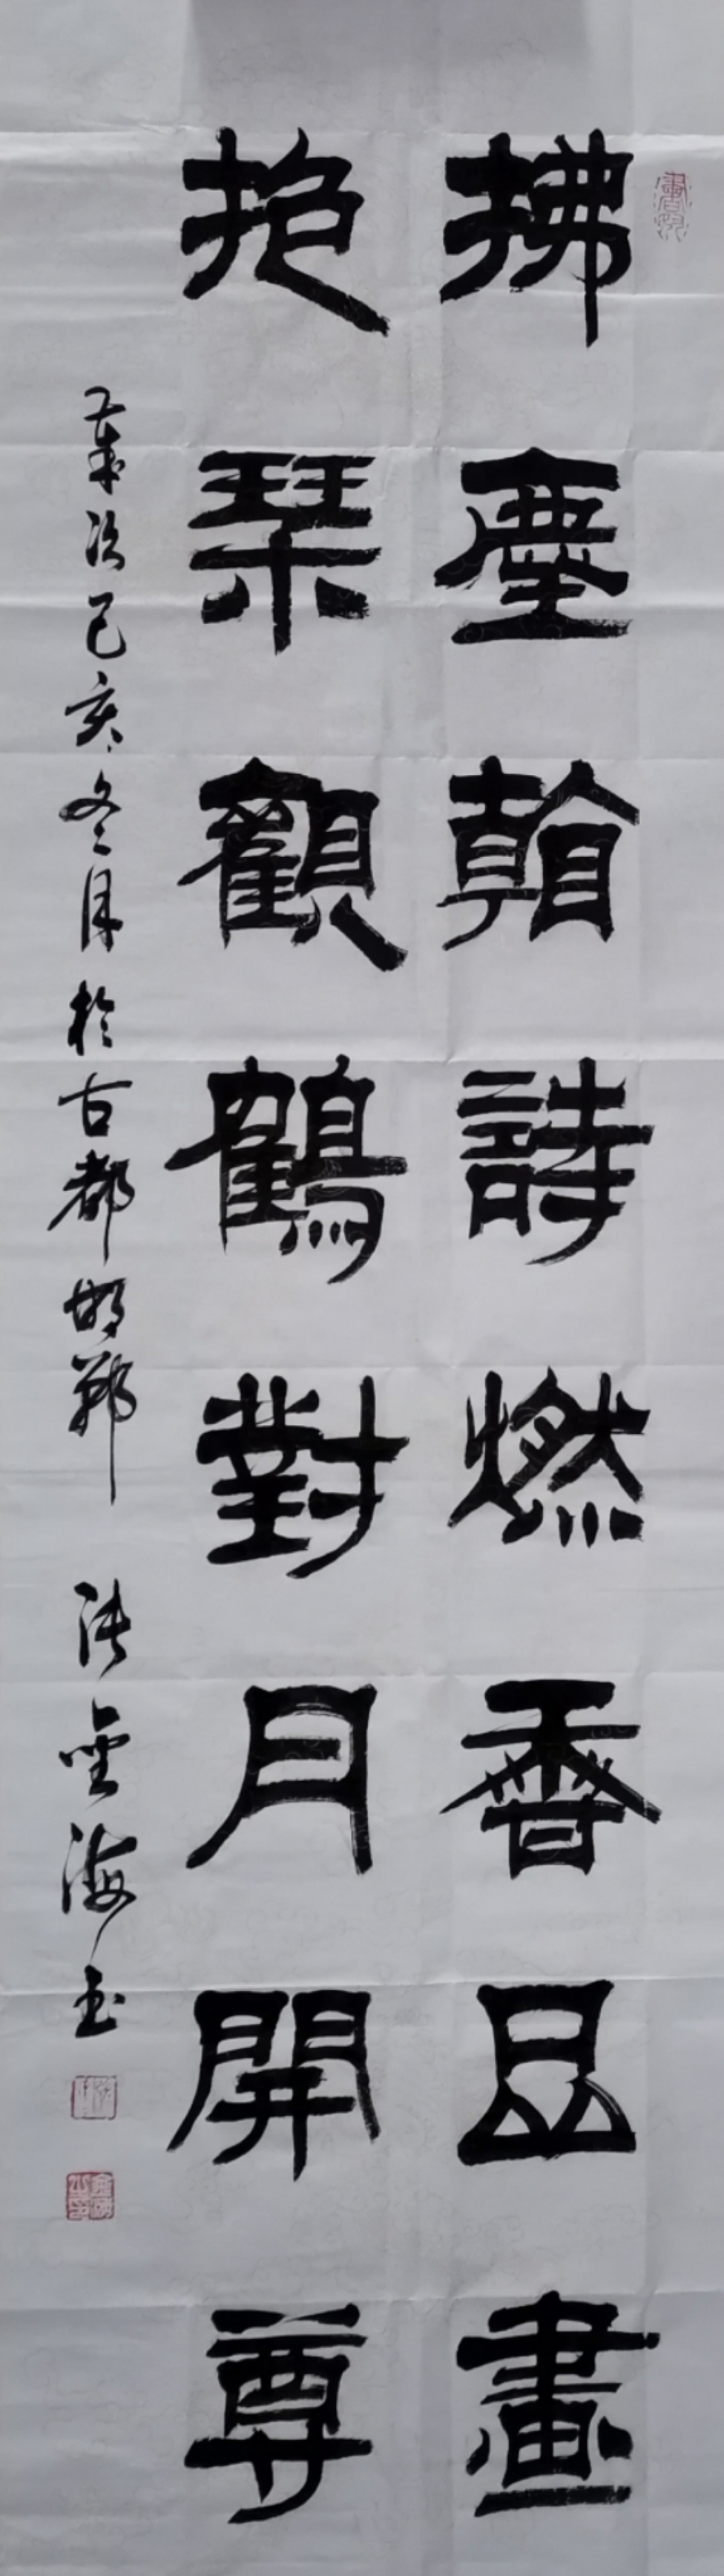 拂塵翰詩燃香品畫
抱琴觀鶴對月開尊
歲次己亥冬月於古都邯鄲 張金海書